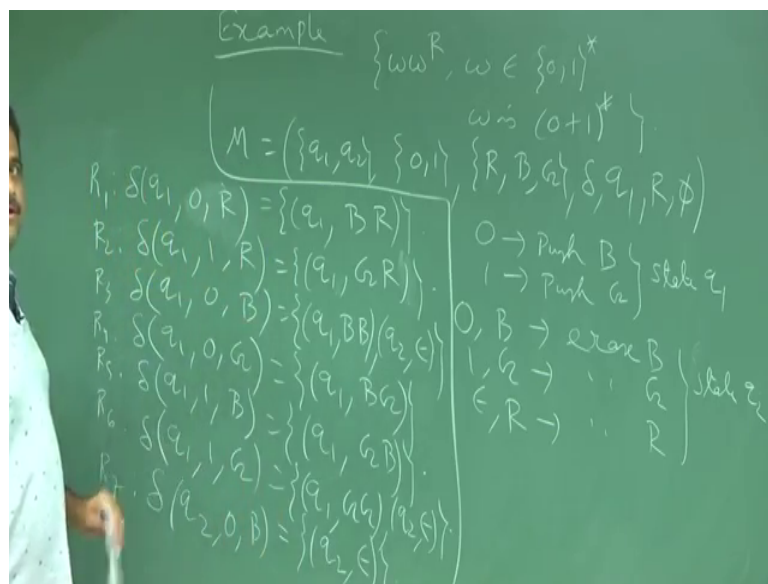 Example {ωω^R, ω ∈ {0,1}*
ω is (0+1)* }.
M = ({q₁,q₂}, {0,1}, {R, B, G}, δ, q₁, R, φ)
R₁: δ(q₁, 0, R) = {(q₁, BR)}
R₂. δ(q₁, 1, R) = {(q₁, GR)}.
R₃ δ(q₁, 0, B) = {(q₁, BB), (q₂, ε)}
R₄. δ(q₁, 0, G) = {(q₁, BG)}
R₅. δ(q₁, 1, B) = {(q₁, GB)}.
R₆ δ(q₁, 1, G) = {(q₁, GG), (q₂, ε)}.
R₇. δ(q₂, 0, B) = {(q₂, ε)}.
0 → Push B
1 → Push G } state q₁
0, B → erase B
1, G → ,, G
ε, R → ,, R } state q₂